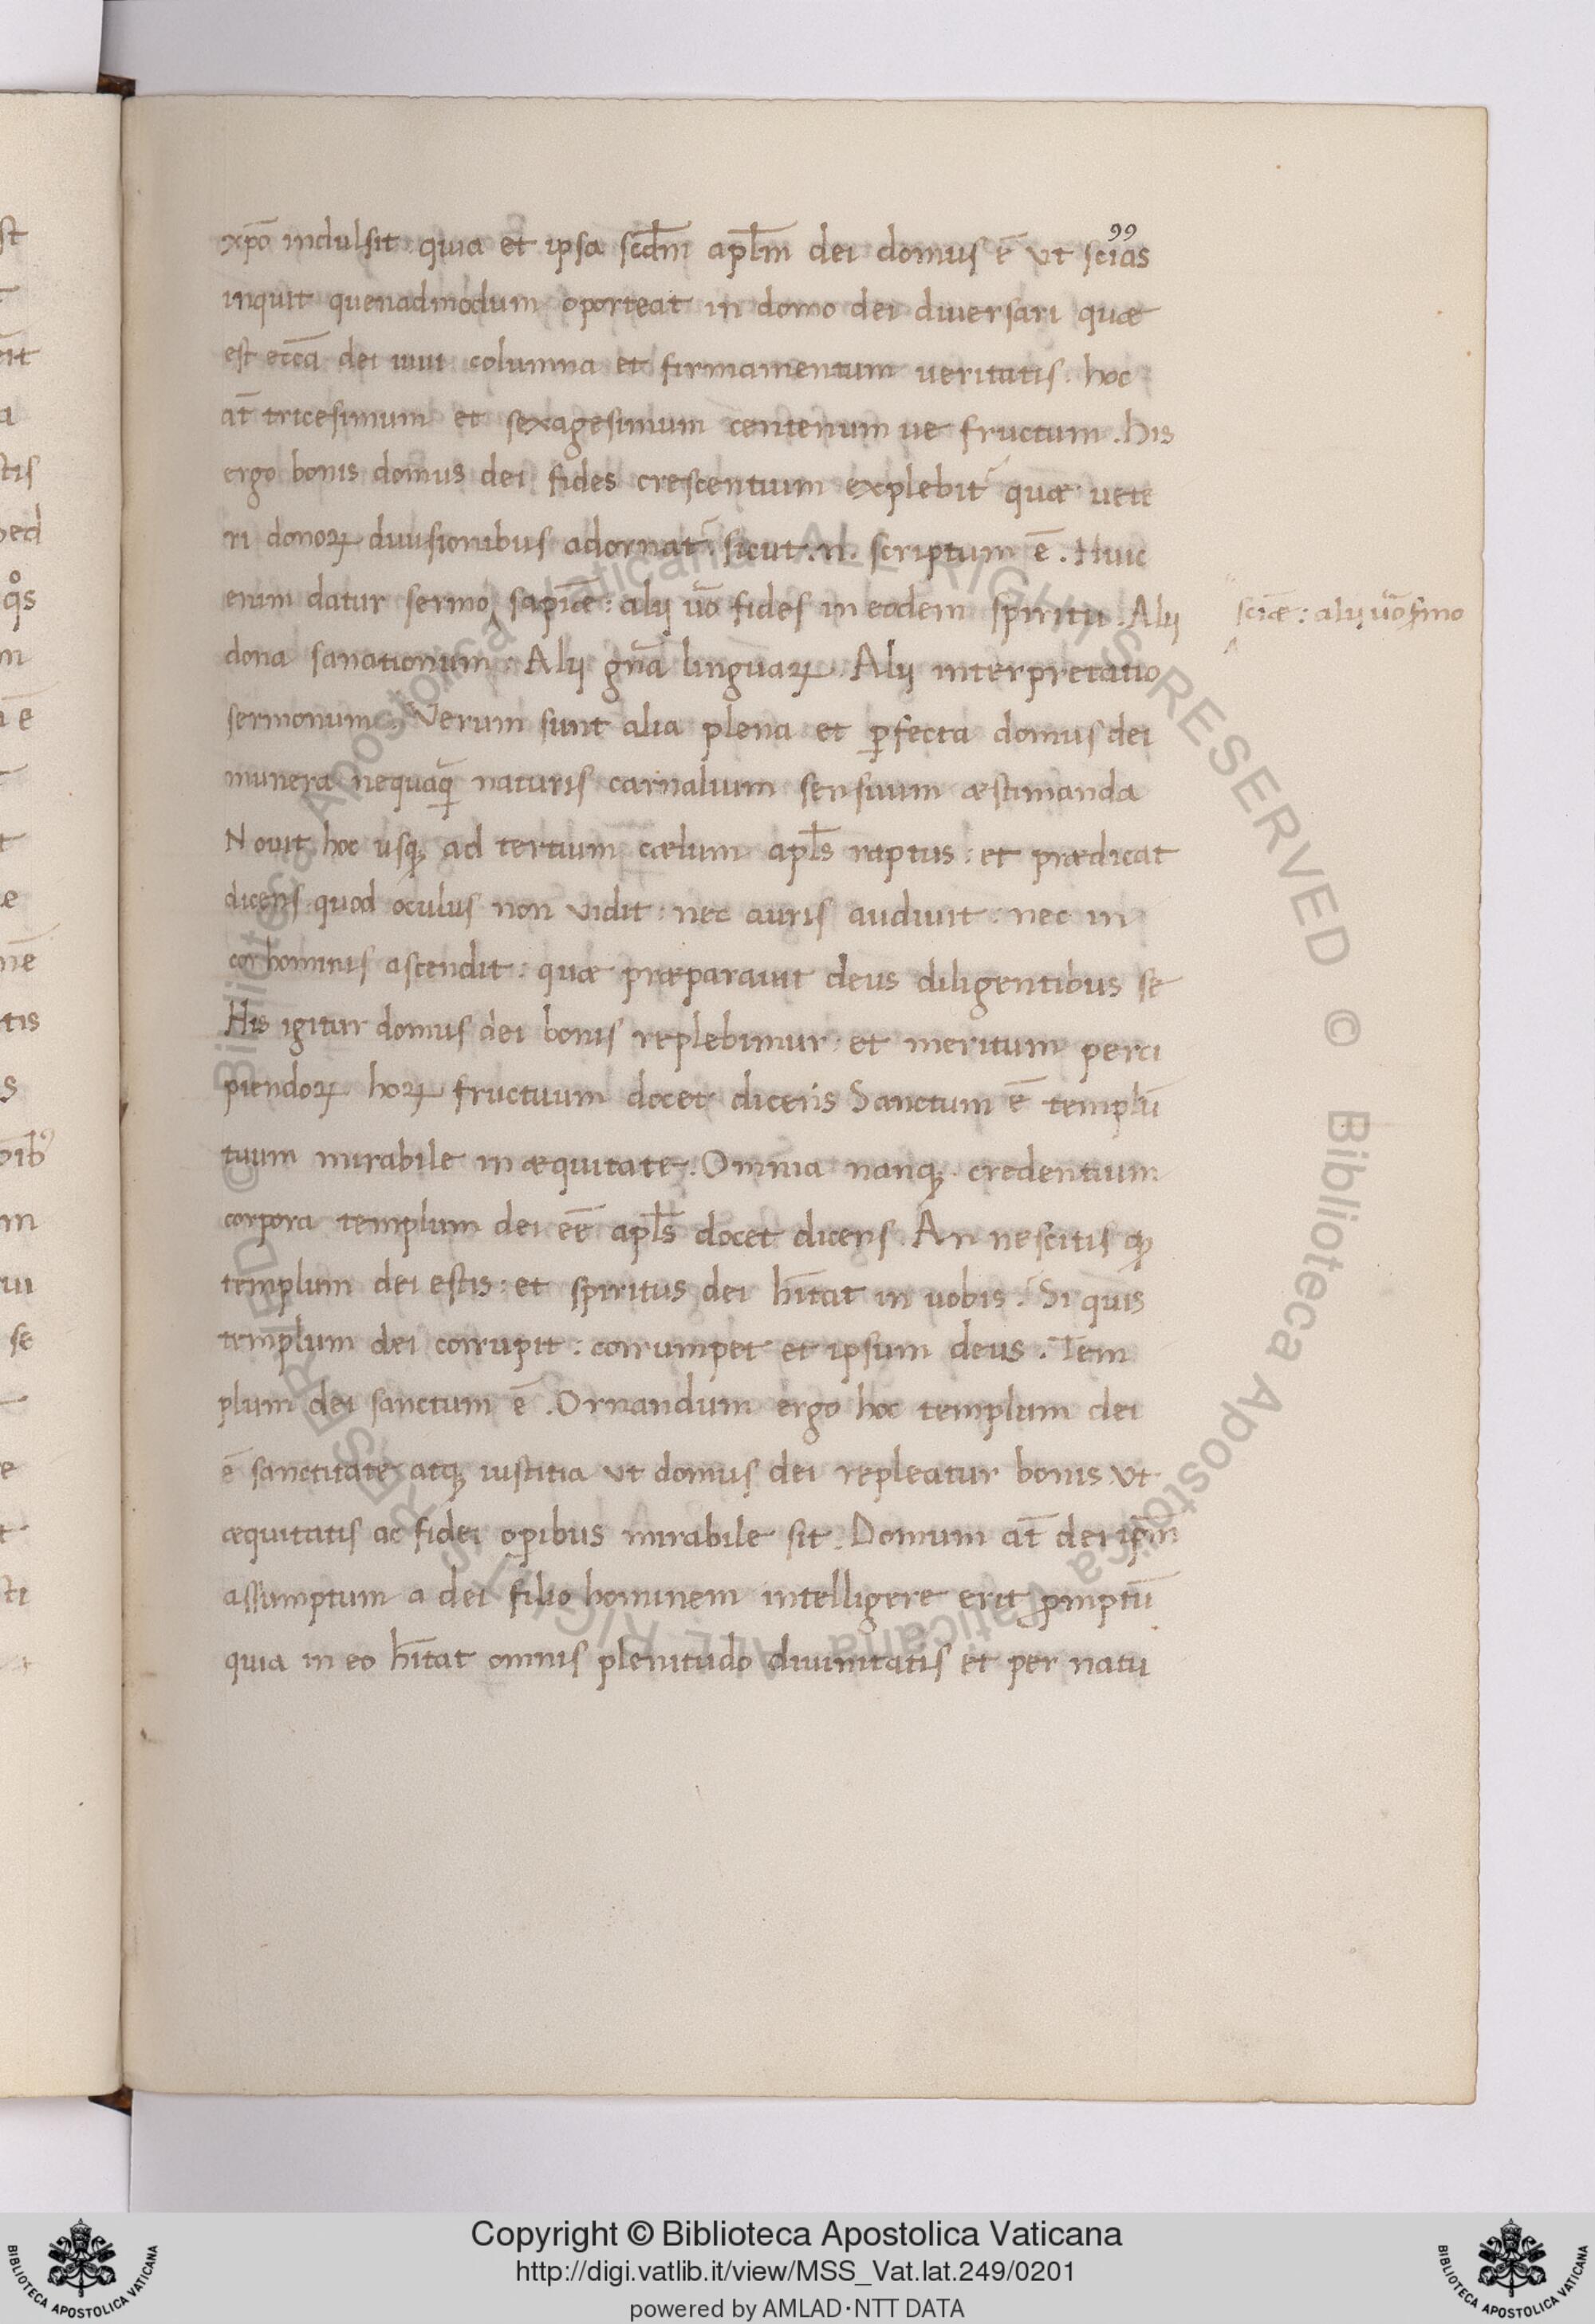 99
xp̄o indulsit quia et ipsa scd̄m apl̄m dei domus ē vt scias
inquit quenadmodum oporteat in domo dei diuersari quæ
est ecc̄a dei uiui columna et firmamentum ueritatis. hoc
at̄ tricesimum et sexagesimum centenum ue fructum. His
ergo bonis domus dei fides crescentium explebit᷑ quæ uete
ri donoꝝ diuisionibus adornat᷑. sicut .n. scriptum ē. Huic
enim datur sermo ‸ sapīæ: alij u̅o fides in eodem spiritu. Alij
sci̅æ: alij u̅o s̅mo
dona sanationum: Alij gn̅a linguaꝝ. Alij interpretatio
sermonum. Verum sunt alia plena et ꝑfecta domus dei
munera nequaꝗ̄ naturis carnalium sensuum æstimanda
Nouit hoc usqꝫ ad tertium cælum apl̄s raptus: et prædicat
dicens quod oculus non vidit: nec auris audiuit: nec in
cor hominis ascendit: quæ præparauit deus diligentibus se
His igitur domus dei bonis replebimur: et meritum perci
piendoꝝ hoꝝ fructuum docet dicens Sanctum ē templū
tuum mirabile in æquitate. Omnia nanqꝫ credentium
corpora templum dei eē̄ apl̄s docet dicens. An nescitis ꝙ
templum dei estis: et spiritus dei hītat in uobis. Si quis
templum dei corrupit: corrumpet et ipsum deus. Tem
plum dei sanctum ē. Ornandum ergo hoc templum dei
ē sanctitate atqꝫ iustitia vt domus dei repleatur bonis vt
æquitatis ac fidei opibus mirabile sit. Domum at̄ dei ip̄m
assumptum a dei filio hominem intelligere erit ꝓmptū
quia in eo hītat omnis plenitudo diuinitatis et per natu
Copyright © Biblioteca Apostolica Vaticana
http://digi.vatlib.it/view/MSS_Vat.lat.249/0201
powered by AMLAD·NTT DATA